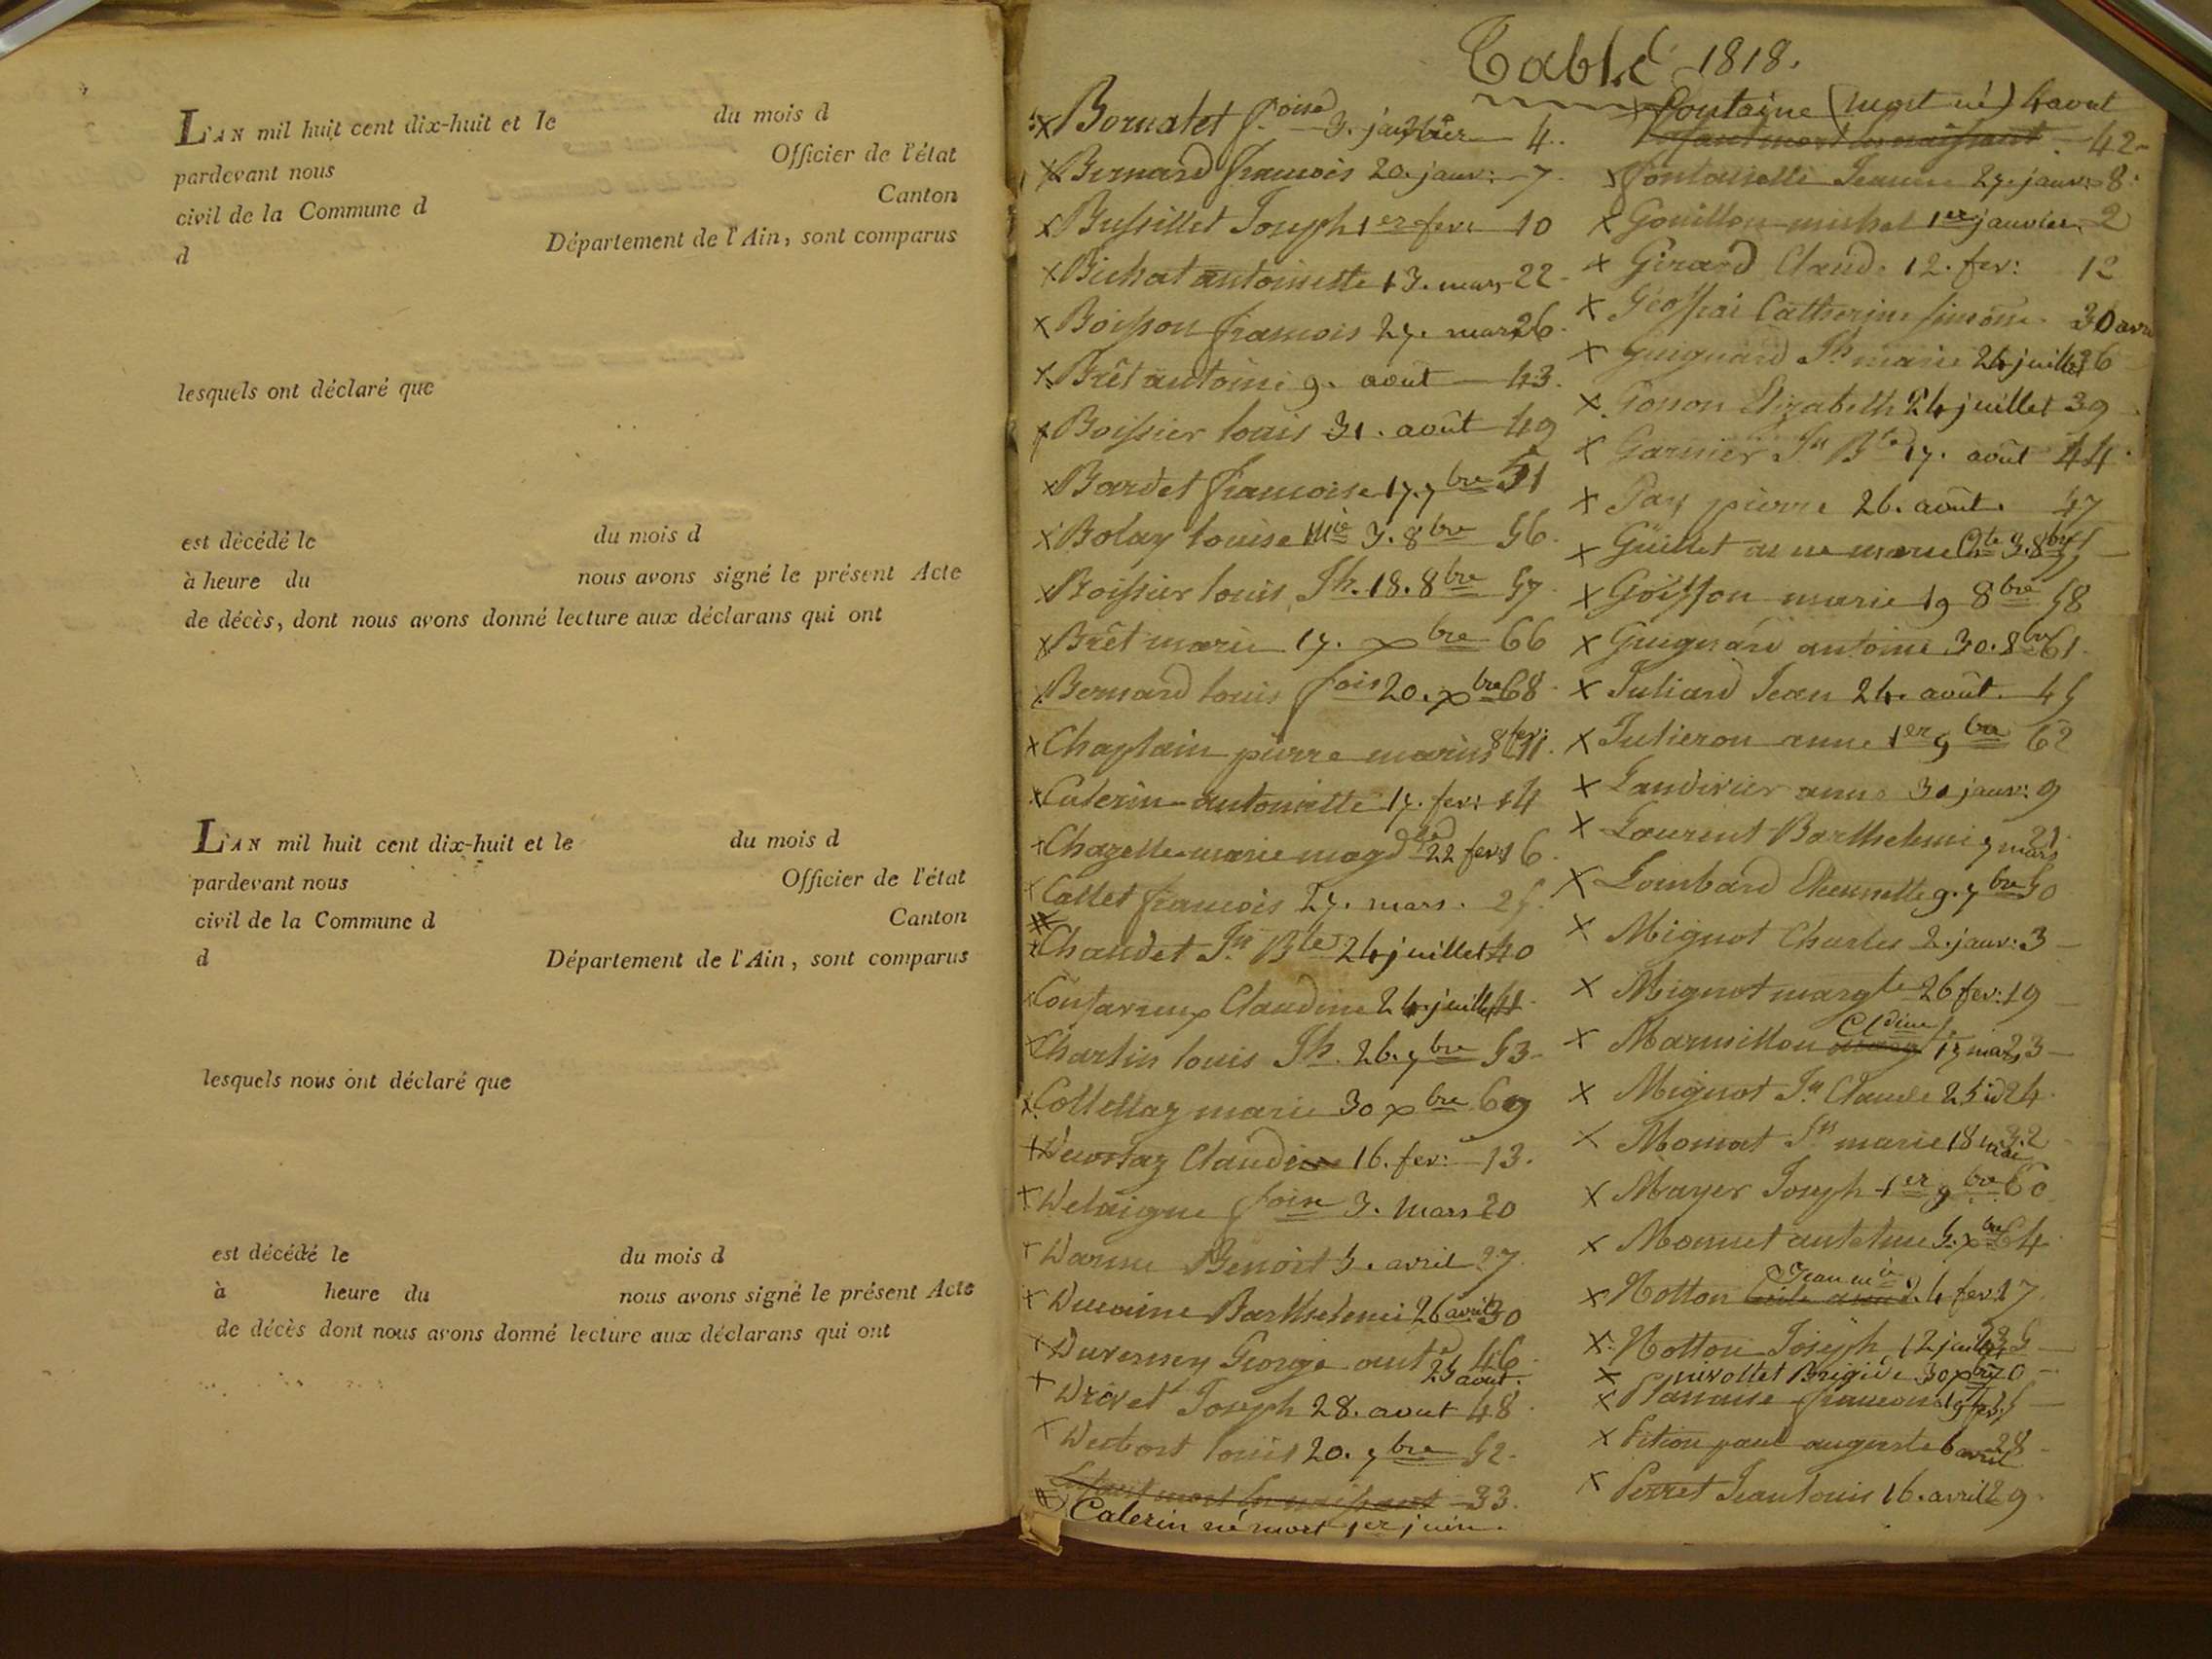 L'AN mil huit cent dix-huit et le du mois d
pardevant nous Officier de l'état
civil de la Commune d Canton
d Département de l'Ain, sont comparus
lesquels ont déclaré que
est décédé le du mois d
à heure du nous avons signé le présent Acte
de décès, dont nous avons donné lecture aux déclarans qui ont
L'AN mil huit cent dix-huit et le du mois d
pardevant nous Officier de l'état
civil de la Commune d Canton
d Département de l'Ain, sont comparus
lesquels nous ont déclaré que
est décédé le du mois d
à heure du nous avons signé le présent Acte
de décès dont nous avons donné lecture aux déclarans qui ont
Table 1818.
x Bornatet f.oise 3. janvier 4.
x Bernard francois 20. janv: 7.
x Bussillet Joseph 1er fev: 10
x Bichat antoinette 13. mars 22
x Boisson francois 27. mars 26.
x Brêt antoine 9. août 43.
x Boissier louis 31. août 49
x Bardet francoise 17. 7bre 51
x Bolay louise Mie 3. 8bre 56.
x Boissier louis Jh. 18. 8bre 57
x Brêt marie 17. xbre 66
x Bernard louis fois 20. xbre 68
x Chaplain pierre marius 8 fev: 11.
x Caterin antoinette 17. fev: 14
x Chazelle marie magdne 22 fev: 16
x Callet francois 27. mars. 25.
x Chaudet Jn Bte 24 juillet 40
x Claudine 24 juillet 41
x Charlin louis Jh. 26. 7bre 53
x Collellaz marie 30 xbre 69
x Decostaz Claudine 16. fev: 13.
x Delaigue foise 3. mars 20
x Darme Benoit 5. avril 27
x Ducaine Barthelemi 26 avril 30
x Duverney George ant. 25 aout. 46
x Drevet Joseph 28. aout 48
x Debost louis 20. 7bre 52
Enfant mort en naissant 33.
Caterin né mort 1er juin.
x Fontaine (mort né) 4 aout
Enfant mort en naissant 42
x Fontanelle Jeanne 27. janv: 8.
x Gouillon michel 1er janvier 2
x Girard Claude 12. fev: 12
x Géoffrai Catherine simone 30 avril
x Guignard Jh marie 24 juillet 36
x Gonon Elizabeth 24 juillet 39
x Garnier Jn Bte 17. août 44
x Gay pierre 26. août. 47
x Guillet anne marie 3. 8bre 55
x Goisson marie 19 8bre 58
x Guignard antoine 30. 8bre 61.
x Juliard Jean 24. août. 45
x Julieron anne 1er 9bre 62
x Landivier anne 30 janv: 9
x Laurent Barthelemi 9 mars 21
x Lombard Etiennette 9. 7bre 50
x Mignot Charles 2. janv: 3
x Mignot margte 26 fev: 19
x Marmillon Cldine 17 mars 23
x Mignot Jn Claude 25 id 24
x Momat Jn marie 18 mai 32
x Mayer Joseph 1er 9bre 60
x Monnet antelme 5. xbre 64
x Notton Jean mie 24 fev: 17
x Notton Joseph 12 juillet 35
x nivollet Brigide 30 xbre 70
x francois 19 fev: 15
x Pition paul auguste 6 avril 28
x Perret Jean louis 16. avril 29